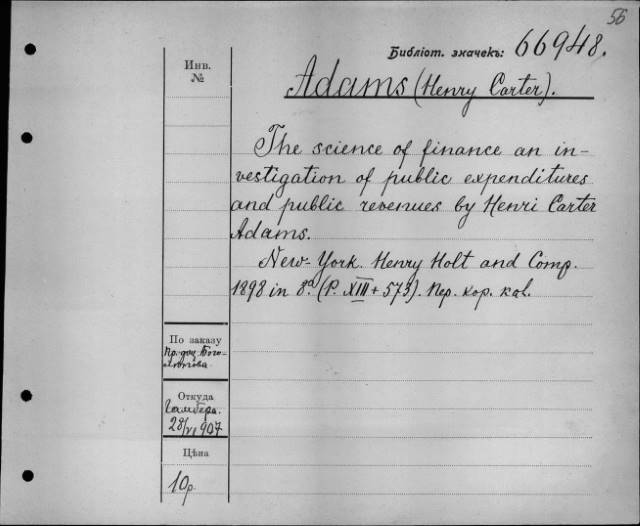 56
Библіот. значекъ: 66948.
Инв.
№
Adams (Henry Carter).
The science of finance an in-
vestigation of public expenditures
and public revenues by Henri Carter
Adams.
New-York. Henry Holt and Comp.
1898 in 8º. (P. XIII + 573). Пер. кор. кал.
По заказу
Пр. доц. Бого-
лѣпова
Откуда
Гамбера.
28/VI 907
Цѣна
10 р